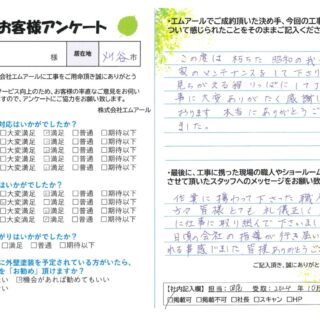 お客様アンケート
様
居住地
刈谷市
株式会社エムアールに工事をご用命頂き誠にありがとう
サービス向上のため、お客様の率直なご意見をお伺い
ますので、アンケートにご協力をお願い致します。
株式会社エムアール
対応はいかがでしたか？
□大変満足 ☑満足 □普通 □期待以下
□大変満足 ☑満足 □普通 □期待以下
□大変満足 ☑満足 □普通 □期待以下
はいかがでしたか？
□大変満足 ☑満足 □普通 □期待以下
がりはいかがでしたか？
に外壁塗装を予定されている方がいたら、
を「お勧め」頂けますか？
□機会があれば勧めてもいい
・エムアールでご成約頂いた決め手、今回の工事
ついて感じられたことをそのままご記入くださ
この度は 朽ちた 昭和の我
家のメンテナンスをして下さり
見ちがえる程 りっぱにして
事に大変ありがたく感謝し
おります 本当にありがとうご
・最後に、工事に携った現場の職人やショールーム
させて頂いたスタッフへのメッセージをお願い致
作業に携わって下さった職人
方々 皆様とても 礼儀正しく
に仕事に取り組んで下さいまし
日頃の会社の指導が行き届いて
れる事感じました 皆様ありがとうご
ご記入頂き、誠にありがと
【社内記入欄】 担当： 受取：2024年10月
□掲載可 □掲載不可 □社長 □スキャン □HP